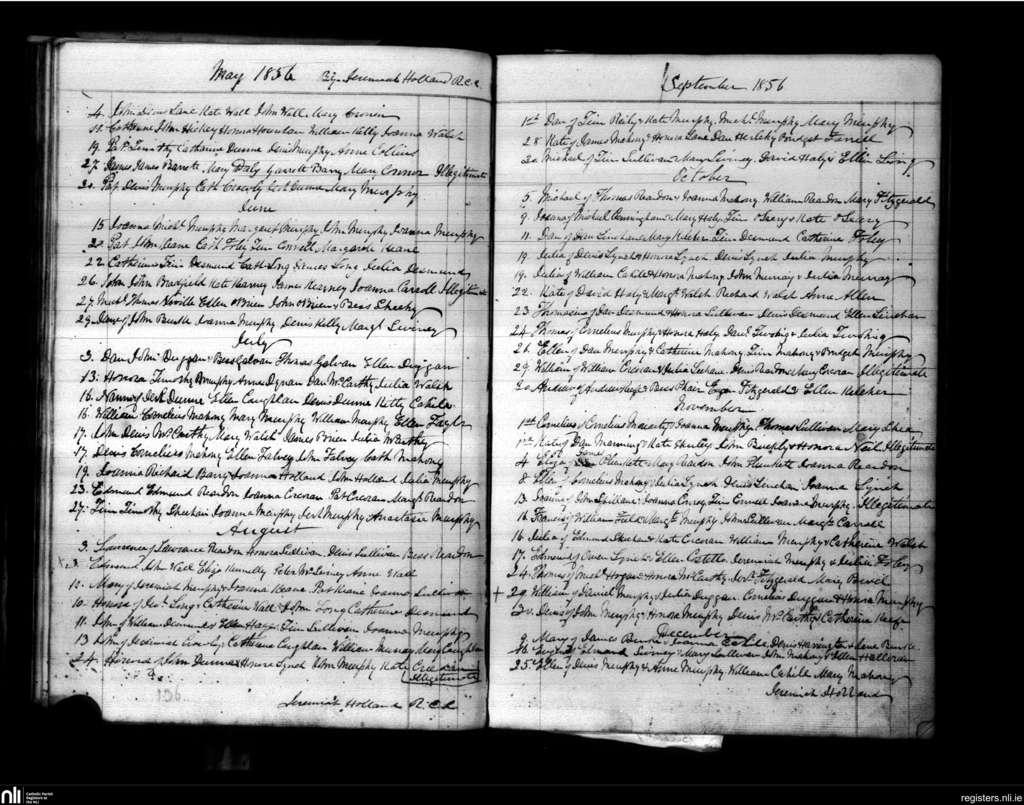 May 1856 By Jeremiah Holland R.C.C.
4. Lane Kate Wall John Wall Mary
Cathrine John Hickey Honora Hourehan William Kelly Joanna Walsh
19. Pat Timothy Catharine Dunne Denis Murphy Anne Collins
27. James James Barrett Mary Daly Garrett Barry Mary Connor Illegitimate
Pat Denis Murphy Cath Crowly Jerh Dunne Mary Murphy
June
15 Joanna Michl Murphy Margaret Murphy John Murphy Joanna Murphy
20 Pat John Keane Cath Foley Tim Connell Margaret Keane
22 Catherine Tim Desmond Cath Long Long Julia Desmond
26. John John Bradfield Kate Kearney James Kearney Joanna Carroll Illegitimate
27. Michl Thomas Neville Ellen O'Brien John O'Brien Bess Sheehy
29. Jane of John Burke Joanna Murphy Denis Kelly Margt Swiney
July
3. Dan John Duggan Bess Galvan Thomas Galvan Ellen Duggan
13. Honora Timothy Murphy Anne Dynan Dan McCarthy Julia Walsh
16. Nanny of Jerh Dunne Ellen Coughlan Denis Dunne Kitty Cahill
16. William Cornelius Mahony Mary Murphy William Murphy Ellen Taylor
17. John Denis McCarthy Mary Walsh James Brien Julia McCarthy
17. Denis Cornelius Mahony Ellen Falvey John Falvey Cath Mahony
19. Joanna Richard Barry Joanna Holland John Holland Julia Murphy
23. Edmond Edmund Reardon Joanna Corcoran Pat Corcoran Margt Reardon
27. Tim Timothy Sheehan Joanna Murphy Jerh Murphy Anastasia Murphy
August
3. Lawrence of Lawrence Reardon Honora Sullivan Denis Sullivan Bess Reardon
x 3. Edmond John Wall Eliza Kennelly Peter McSwiney Anne Wall
12. Mary of Jeremiah Murphy & Joanna Keane Pat Keane Joanna
10. Honora of Long & Catherine Wall & John Long Catherine Desmond
11. John of William Desmond & Ellen Hayes Tim Sullivan Joanna Murphy
13 John of Jeremiah Crowly & Catherine Coughlan William Murray Mary Coughlan
24. Honora of John Dunne & Honora Lynch John Murphy Kate
Illegitimate
196
Jeremiah Holland R.C.C.
September 1856
1st Dan of Tim Reily & Kate Murphy. Michl Murphy Mary Murphy
28. Kate of James Mahony & Honora Lane Dan Herlihy Bridget Farrell
30 Michael of Tim Sullivan & Mary Swiney. David Haly & Ellen
October
5. Michael of Thomas Reardon & Joanna Mahony William Reardon Mary Fitzgerald
9. Joanna of Michael Cunningham & Mary Haly Tim O'Leary & Kate O'Leary
11. Dan of Dan Linehan & Mary Kelcher Tim Desmond Catherine Foley
19. Julia of Denis Lynch & Honora Lynch. Denis Lynch Julia Murphy
19. Julia of William Cahill & Honora Mahony John Murray & Julia Murray
22. Kate of David Haly & Margt Walsh Richard Walsh Anne Allen
23 Thomasina of Dan Desmond & Honora Sullivan Denis Desmond Ellen Linehan
24. Thomas of Cornelius Murphy & Honora Haly Danl Twohig & Julia Twohig
26. Ellen of Dan Murphy & Catherine Mahony Tim Mahony & Bridget Murphy
29. William of William Corcoran & Julia Denis Reardon & Mary Corcoran Illegitimate
30 Andrew of Andrew & Bess Phair Fitzgerald & Ellen Kelcher
November
1st Cornelius of Cornelius Moriarty & Joanna Murphy. Thomas Sullivan Mary Shea
1st Kate of Dan Manning & Kate Hurley John & Honora Neill Illegitimate
4 Eliza of James Plunkett & Mary Reardon John Plunkett Joanna Reardon
8. Ellen of Cornelius Mahony & Julia Lynch Denis Linehan Joanna Lynch
13. Joanna of John & Joanna Tim Connell Joanna Murphy Illegitimate
16. Francis of William Field & Margt Murphy John Sullivan Margt Carroll
16. Julia of Edmund & Kate Corcoran William Murphy & Catherine Walsh
17. Edmund of Owen Lynch & Ellen Costello Jeremiah Murphy & Julia Foley
24. Thomas of Michl Hogan & Honora McCarthy Fitzgerald Mary
+ 29. William of Daniel Murphy & Julia Duggan Cornelius Duggan & Honora Murphy
30. Denis of John Murphy & Honora Murphy Denis McCarthy & Catherine Keeffe
December
9. Mary of James Burke & Joanna Cahill Denis Harrington & Jane Burke
18. Eugene of Edmond Swiney & Mary Sullivan John Mahony & Ellen Halloran
25th Ellen of Denis Murphy & Anne Murphy William Cahill Mary Mahony
Jeremiah Holland
nli
Catholic Parish
Registers at
the NLI
registers.nli.ie